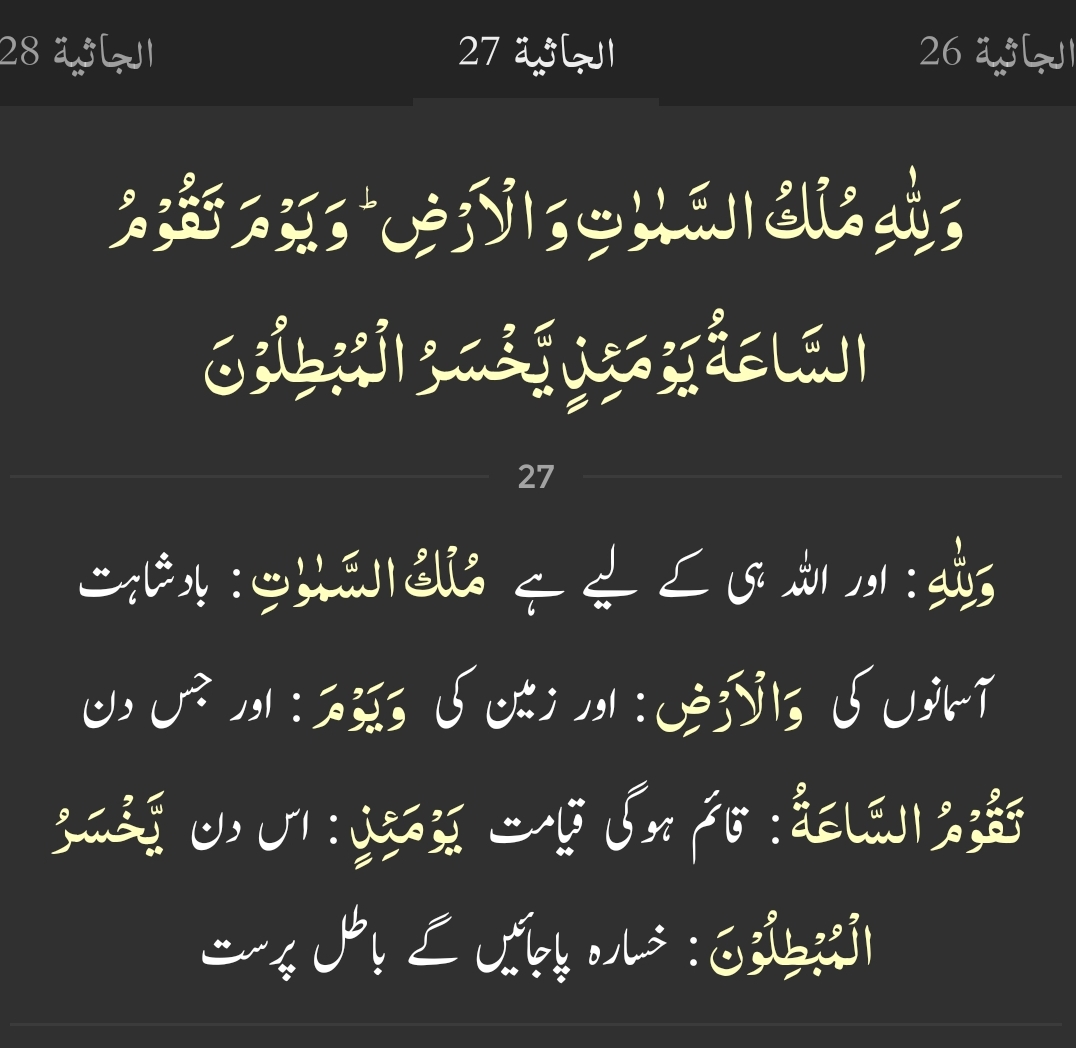 الجاثية 26
الجاثية 27
الجاثية 28
وَلِلّٰهِ مُلْكُ السَّمٰوٰتِ وَ الْاَرْضِ ؕ وَ یَوْمَ تَقُوْمُ
السَّاعَةُ یَوْمَىِٕذٍ یَّخْسَرُ الْمُبْطِلُوْنَ
27
وَلِلّٰهِ : اور اللہ ہی کے لیے ہے مُلْكُ السَّمٰوٰتِ : بادشاہت
آسمانوں کی وَالْاَرْضِ : اور زمین کی وَيَوْمَ : اور جس دن
تَقُوْمُ السَّاعَةُ : قائم ہوگی قیامت يَوْمَئِذٍ : اس دن يَّخْسَرُ
الْمُبْطِلُوْنَ : خسارہ پاجائیں گے باطل پرست